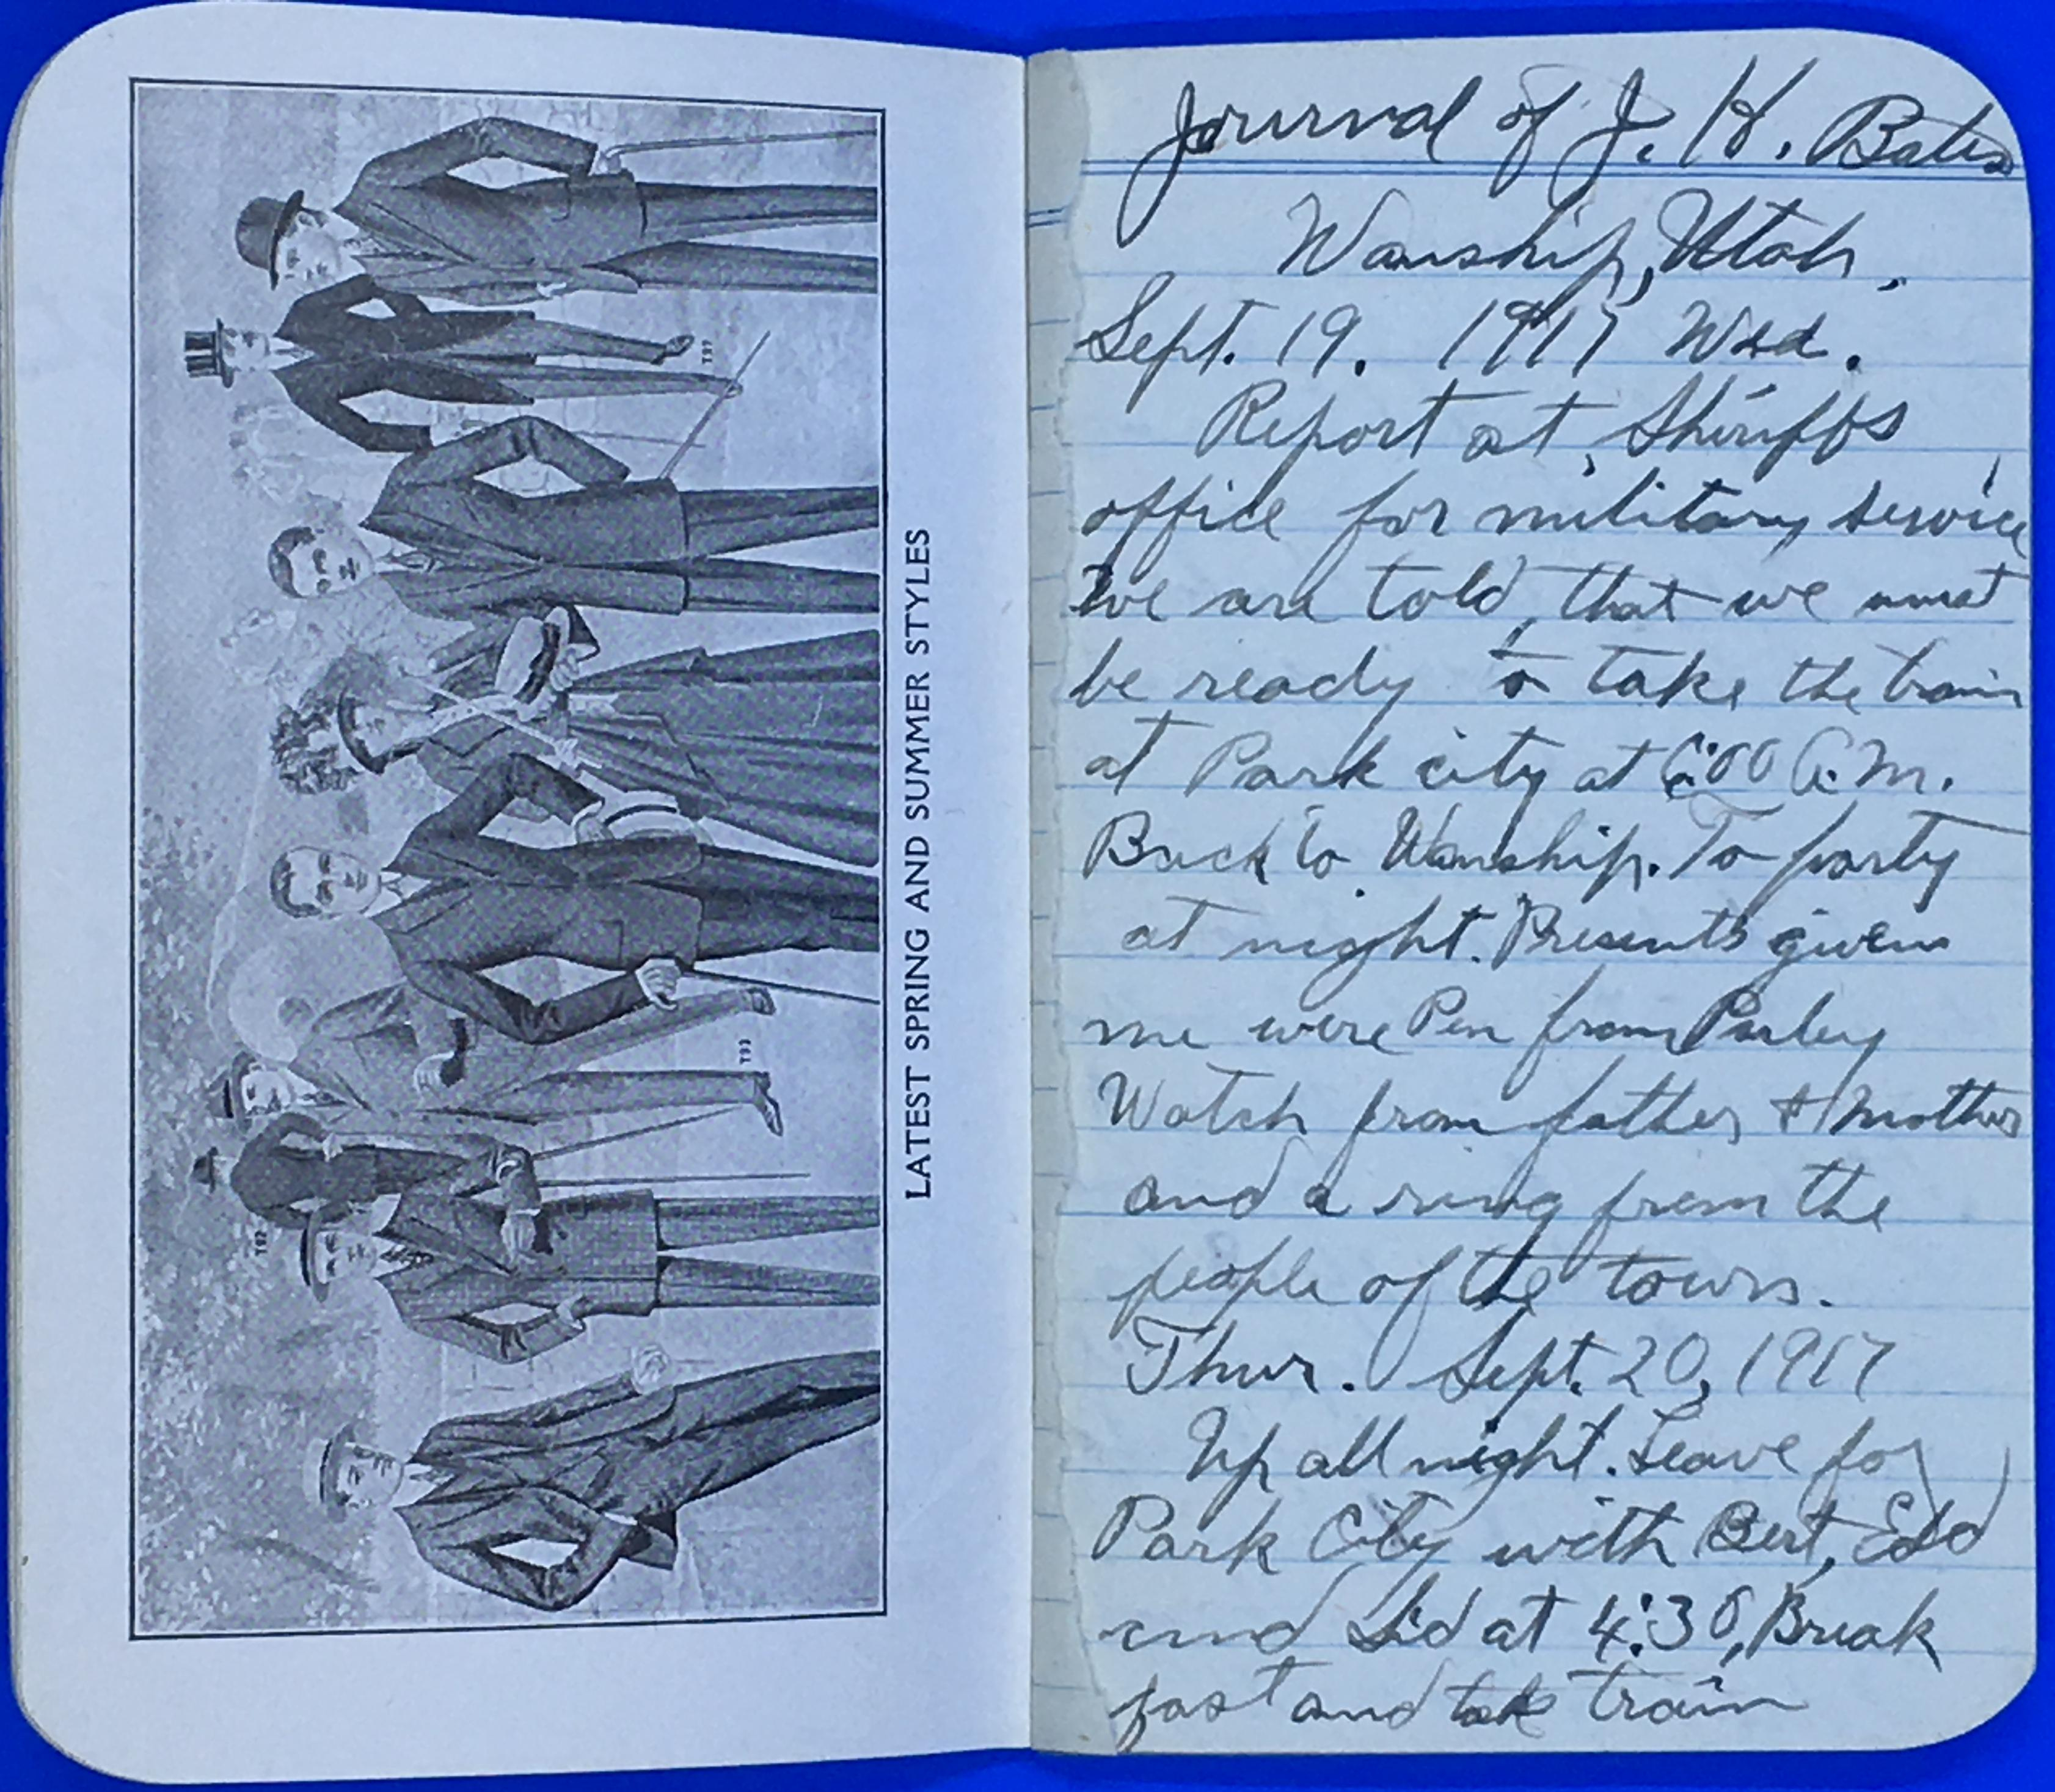 LATEST SPRING AND SUMMER STYLES
T97
T93
T92
Journal of J. H. Bates
Wanship, Utah.
Sept. 19. 1917 Wed.
Report at Sheriffs
office for military service
We are told, that we must
be ready to take the train
at Park city at 6:00 A.M.
Back to Wanship. To party
at night. Presents given
me were Pen from Parley
Watch from father & Mother
and a ring from the
people of the town.
Thur. Sept. 20, 1917
Up all night. Leave for
Park City with Bert, Edd
and Sid at 4:30, Break
fast and take train